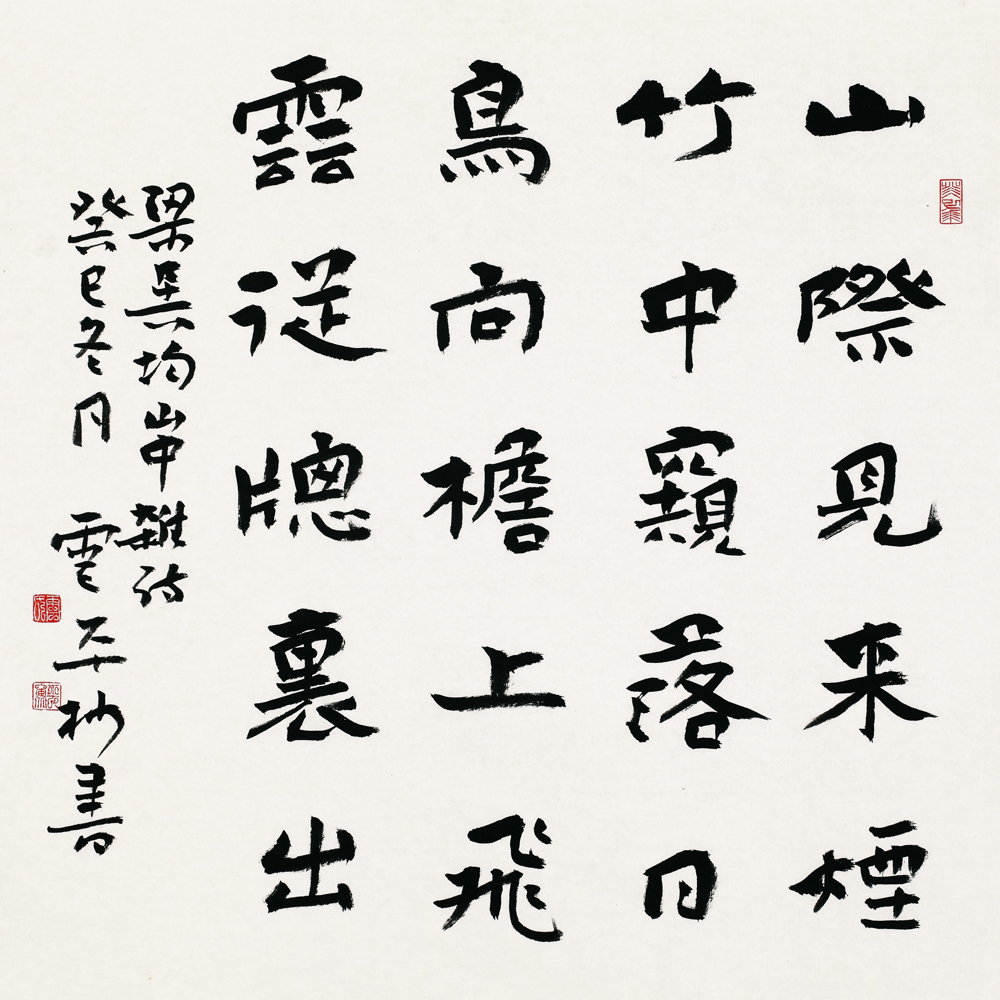 山際見来煙
竹中窺落日
鳥向檐上飛
雲従牕裏出
梁吳均山中雜詩
癸巳冬月 雲平抄書